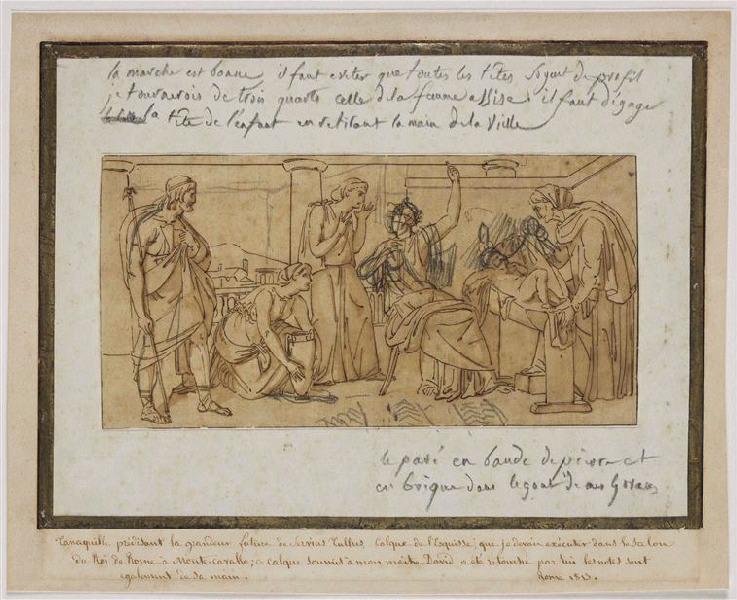 la marche est bonne, il faut eviter que toutes les têtes soyent de profil
je tournerois de trois quarts celle d la femme assise. il faut dégager
la tête de l'enfant en retirant la main de la Ville
le pavé en bande de pierre et
en brique dans le gout de
Tanaquille prédisant la grandeur future de Servius Tullus, Calque de l'Esquisse que je devais exécuter dans le salon
du Roi de Rome à Monte-cavallo; ce calque soumis à mon maitre David a été retouché par lui les notes sont
également de sa main. Rome 1813.